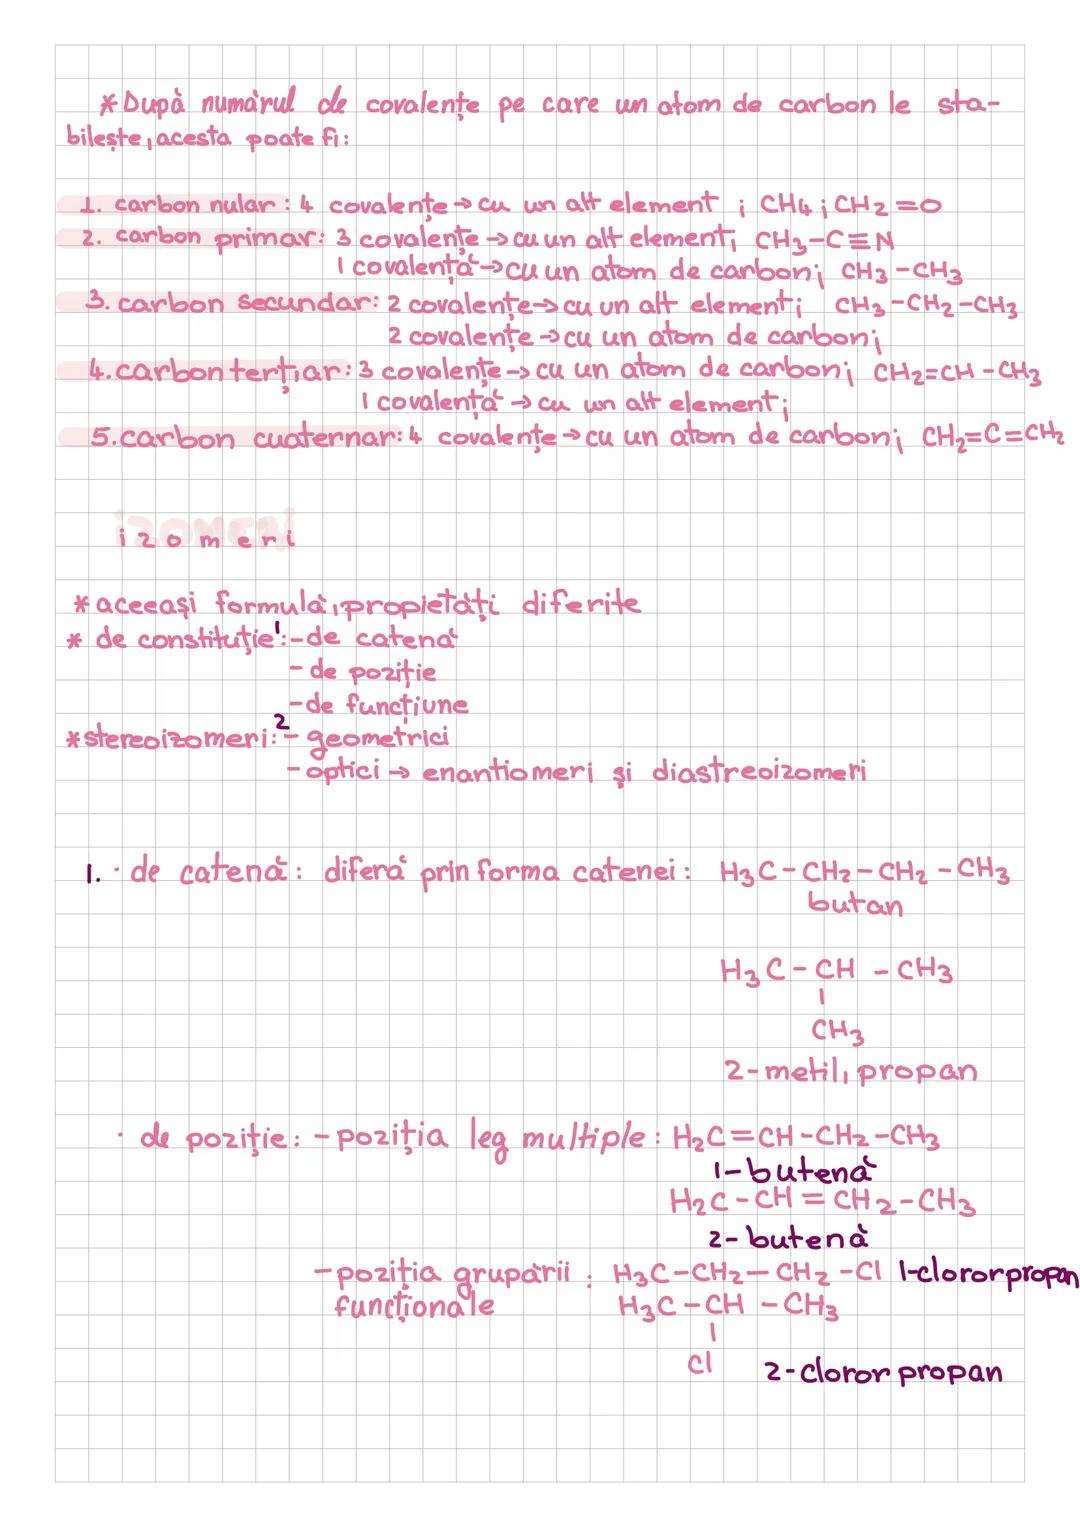 * După numărul de covalențe pe care un atom de carbon le sta-
bilește, acesta poate fi:
1. carbon nular: 4 covalențe → cu un alt element ; CH4 ; CH2=O
2. carbon primar: 3 covalențe → cu un alt element; CH3-C≡N
1 covalență → cu un atom de carbon; CH3-CH3
3. carbon secundar: 2 covalențe → cu un alt element; CH3-CH2-CH3
2 covalențe → cu un atom de carbon;
4. carbon terțiar: 3 covalențe → cu un atom de carbon; CH2=CH-CH3
1 covalență → cu un alt element;
5. carbon cuaternar: 4 covalențe → cu un atom de carbon; CH2=C=CH2
izomeri
* aceeași formulă, propietăți diferite
* de constituție¹: - de catenă
- de poziție
- de funcțiune
* stereoizomeri:² - geometrici
- optici → enantiomeri și diastreoizomeri
1. · de catenă: diferă prin forma catenei: H3C-CH2-CH2-CH3
butan
H3C-CH-CH3
|
CH3
2-metil, propan
· de poziție: - poziția leg multiple: H2C=CH-CH2-CH3
1-butenă
H2C-CH=CH2-CH3
2-butenă
- poziția grupării : H3C-CH2-CH2-Cl 1-clororpropan
funcționale H3C-CH-CH3
|
Cl 2-cloror propan